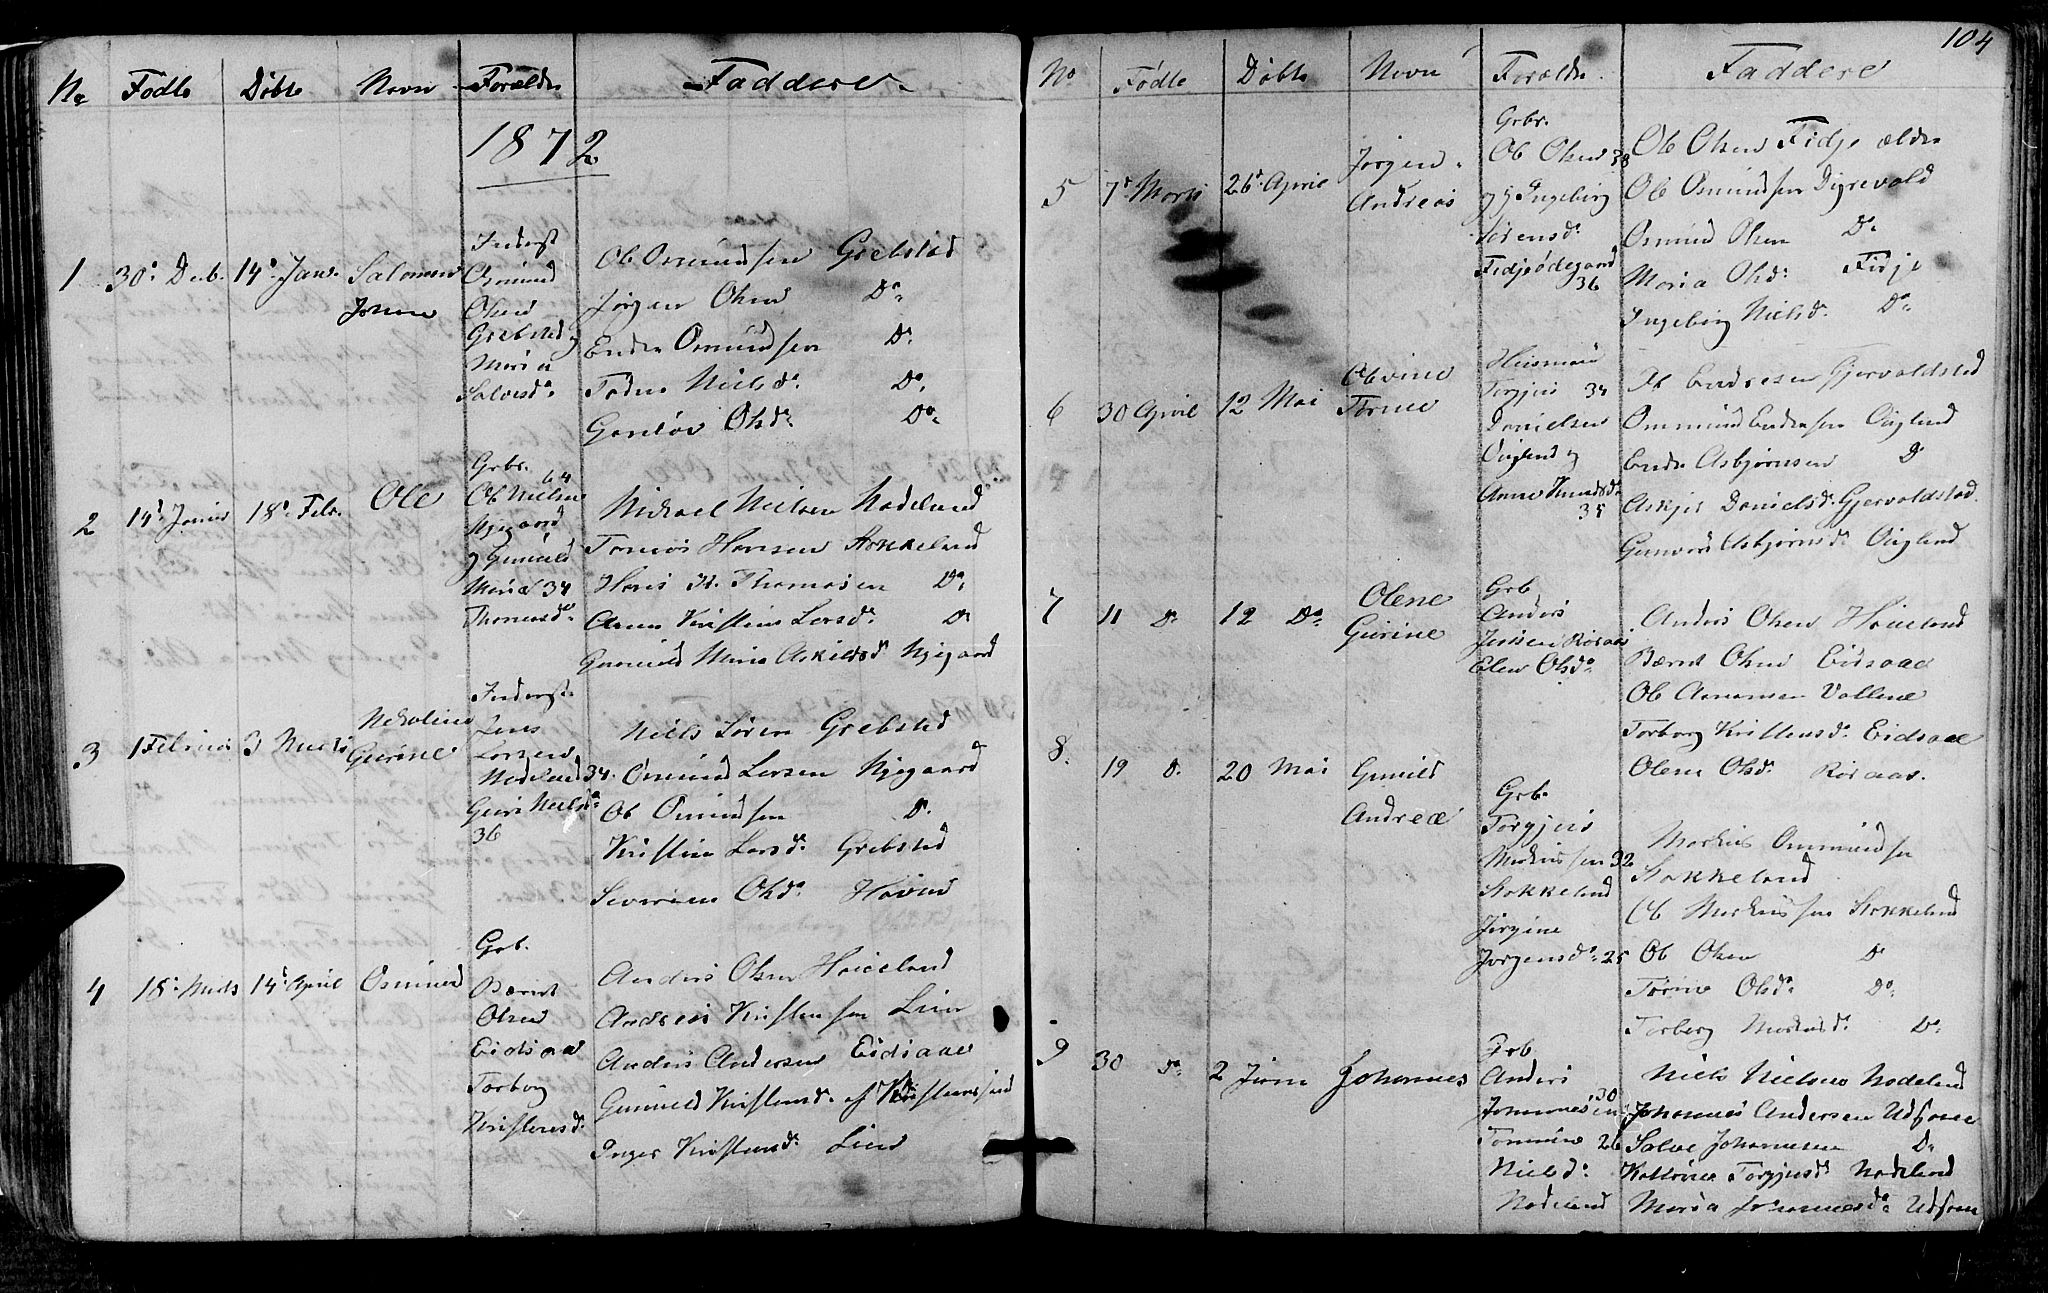 No Födte Döbte Navn Forældre Faddere
1872
1 30te Decb. 14de Janr. Salomon Johan
Inderst
Osmund
Olsen
Grebsted
Maria
Salvesdr
Ole Osmundsen Grebsted
Jörgen Olsen Do
Endre Osmundsen Do
Todne Nielsdr Do
Gunlöv Olsdr Do
2 14de Januar 18de Febr. Ole
Grbr. 64
Ole Nielsen
Njegaard
og Gunild
Maria 34
Thomasdr
Mikael Nielsen Nodeland
Tomas Hansen Stokkeland
Hans H. Thomasen Do
Anne Kristine Larsdr Do
Gunnild Maria Askildsdr Njegaard
3 1 Februar 3 Marts Nekoline Gurine
Inderst
Lars
Larsen
Nodeland 34
Guri Nielsdr
36
Niels Sören Grebsted
Osmund Larsen Njegaard
Ole Osmundsen Do
Kristine Larsdr Grebsted
Severine Olsdr Haven
4 18de Marts 14de April Osmund
Grb.
Bærnt
Olsen
Eidsaae
Torborg
Kristensdr
Anders Olsen Höieland
Andreas Kristensen Lien
Anders Andersen Eidsaae
Gunnild Kristensdr af Kristianssand
Inger Kristensdr Lien
104
No Födte Döbte Navn Forældre Faddere
5 7de Marts 26de April Jörgen Andreas
Grbr.
Ole Olsen 38
og Ingeborg
Sörensdr
Fidjeödegaard
36
Ole Olsen Fidje ældre
Ole Osmundsen Dyrevold
Osmund Olsen Do
Maria Olsdr Fidje
Ingeborg Nielsdr Do
6 30 April 12 Mai Olvine Torine
Huusmand
Torgjus 34
Danielsen
Öugland og
Anne Knudsdr
35
Ole Endresen Gjervoldstad
Ommund Endresen Öugland
Endre Asbjörnsen Do
Askjer Danielsdr Gjervoldstad
Gunvor Asbjörnsdr Öugland
7 11 Do 12 Do Olene Gurine
Grb
Anders
Jensen Rosaas
Elen Olsdr
Anders Olsen Höieland
Bærnt Olsen Eidsaae
Ole Aanensen Vollene
Torborg Kristensdr Eidsaae
Olene Olsdr Rosaas.
8. 19 Do 20 Mai Gunild Andrea
Grb.
Torgjus
Markussen 32
Stokkeland
Jörgine
Jörgensdr 25
Markus Ommundsen
Stokkeland
Ole Markussen Stokkeland
Ole Olsen Do
Torine Olsdr Do
Torborg Markusdr Do
9 30 Do 2 Juni Johannes
Grb
Anders
Johannesen 30
Tomine 26
Nielsdr
Nodeland
Niels Nielsen Nodeland
Johannes Andersen Udsone
Salve Johannesen Do
Kathrine Torgjusdr Nodeland
Maria Johannesdr Udsone